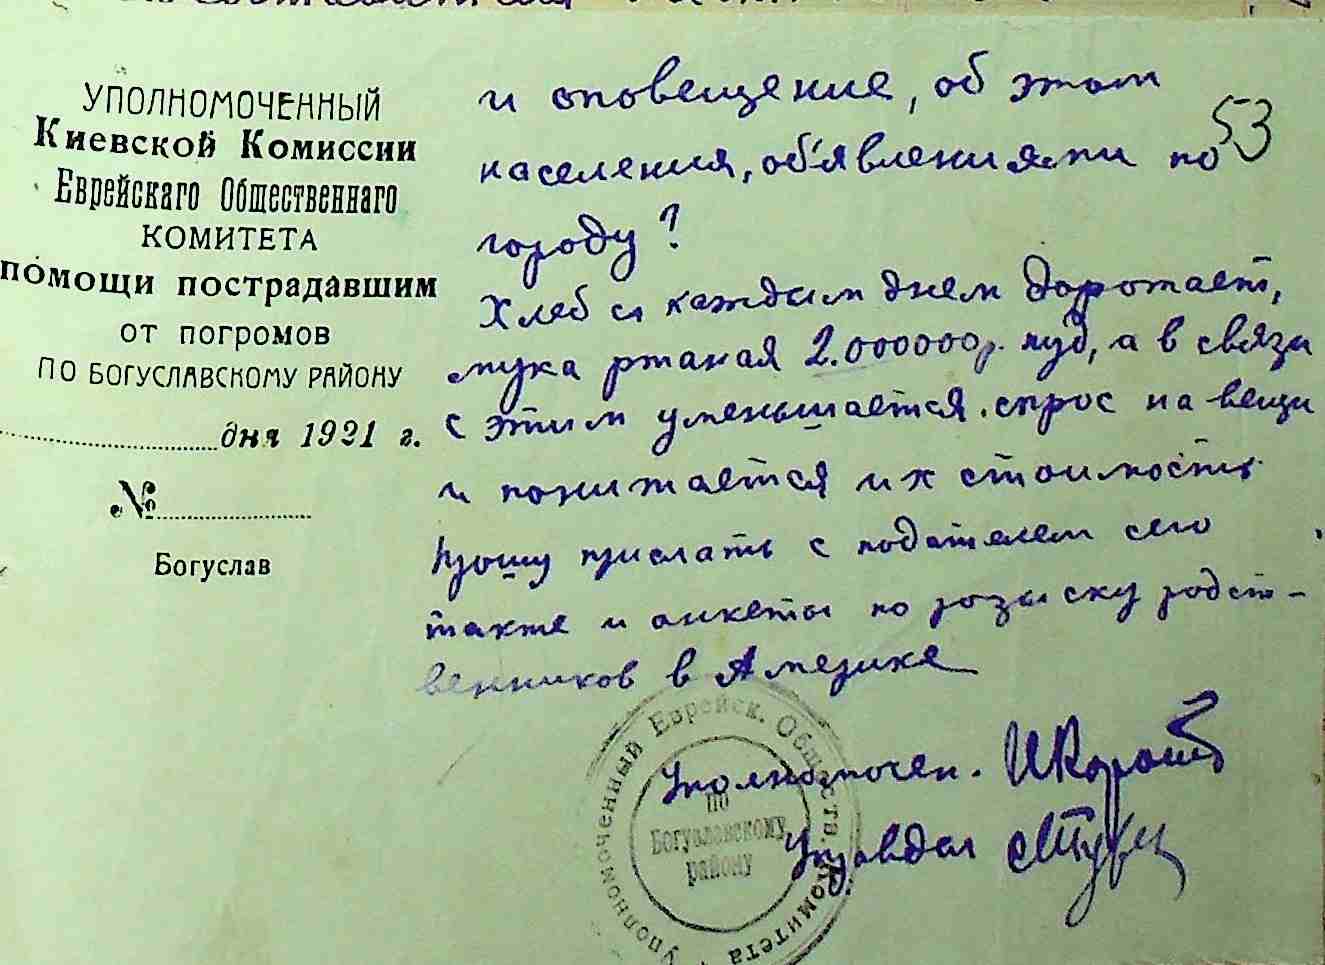 УПОЛНОМОЧЕННЫЙ
Киевской Комиссии
Еврейскаго Общественнаго
КОМИТЕТА
помощи пострадавшим
от погромов
ПО БОГУСЛАВСКОМУ РАЙОНУ
дня 1921 г.
№
Богуслав
53
и оповещение, об этом
населения, об'явлениями по
городу?
Хлеб с каждым днем дорожает,
мука ржаная 2.000000р. пуд, а в связи
с этим уменьшается спрос на вещи
и понижается их стоимость.
Прошу прислать с подателем сего
также и анкеты по розыску родст-
венников в Америке
Уполномочен.
Управдел
Уполномоченный Еврейск. Обществ. Комитета
по
Богуславскому
району